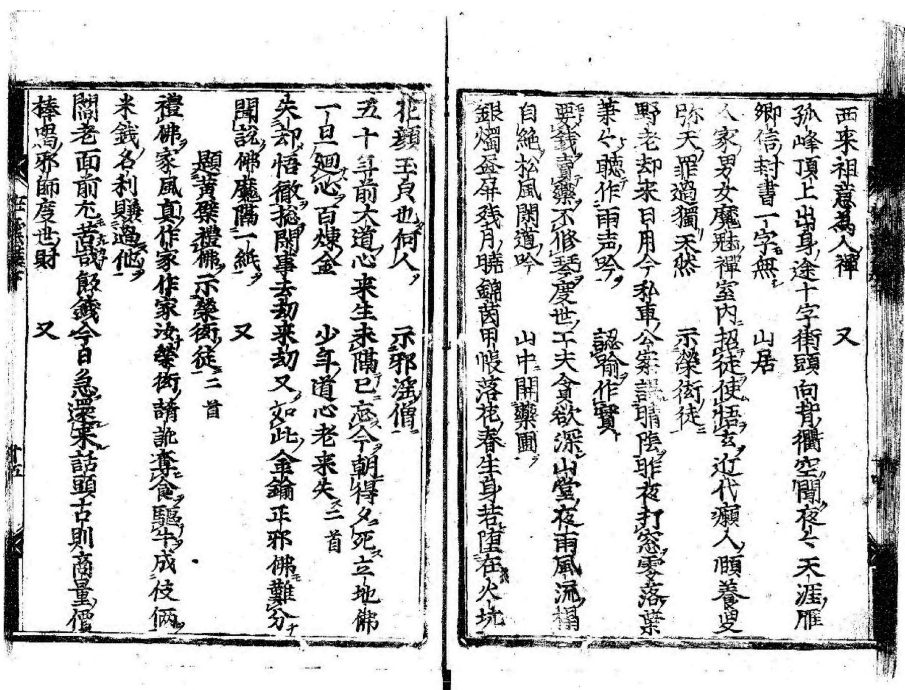 西来祖意為人禅　又
孤峰頂上出身途十字街頭向背衢空聞夜々天涯雁
郷信封書一字無　山居
人家男女魔魅禅室内招徒使悟玄近代癩人頤養叟
弥天罪過独天然　示榮衒徒
野老却来日用今私車公案誤晴陰昨夜打窓零落葉
蕭々聴作雨声吟　認喩作實
要銭賣藥不修琴度世工夫貪欲深山堂夜雨風流榻
自絶松風閑道吟　山中開藥圃
銀燭畫屏残月暁錦茵甲帳落花春生身若堕在火坑
花顔玉貞也何人　示邪淫僧
五十年前大道心来生未隔已忘今朝得夕死立地佛
一旦廻心百煉金　少年道心老来失二首
失却悟徹捴閑事去劫来劫又如此金鍮正邪佛難分
聞説佛魔隔一紙　又
題黄檗禮佛示榮衒徒二首
禮佛家風真作家作家汝榮衒請訛奪食驅牛成伎倆
米銭名利賺過他　又
閻老面前尤苦哉飯錢今日急還来話頭古則商量僧
棒喝邪師度世財　又